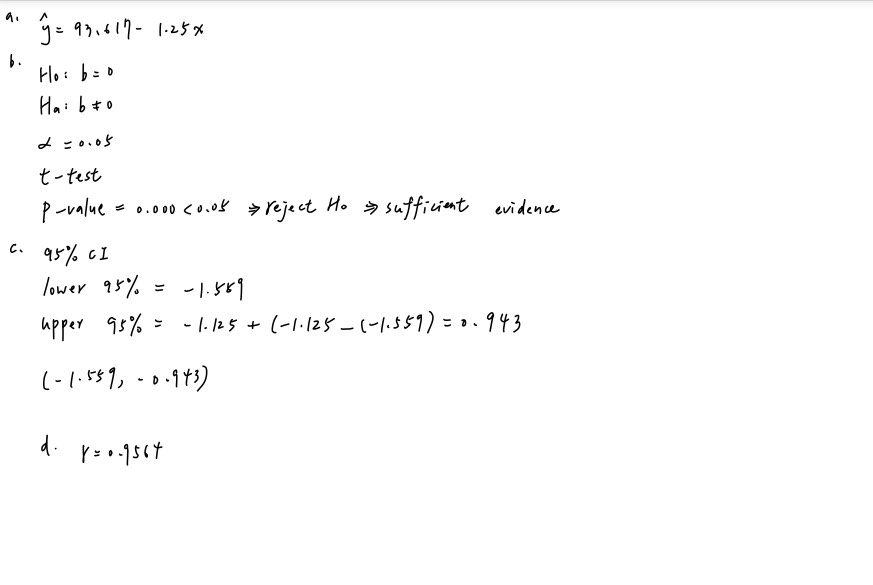 a. ŷ = 93.617 - 1.25x
b.
H₀: b = 0
Ha: b ≠ 0
α = 0.05
t-test
p-value = 0.000 < 0.05 ⇒ reject H₀ ⇒ sufficient evidence
c. 95% CI
lower 95% = -1.559
upper 95% = -1.125 + (-1.125 - (-1.559) = 0.943
(-1.559, -0.943)
d. r = 0.9564